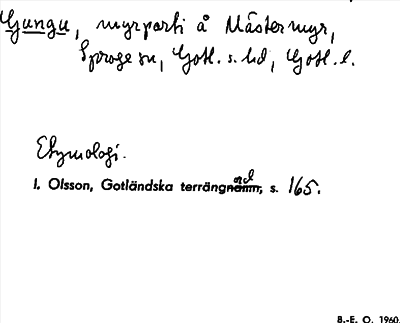 Gungu, myrparti å Mästermyr,
Sproge sn, Gotl. s. hd, Gotl. l.
Etymologi.
I. Olsson, Gotländska terrängnamn, ord s. 165.
B.-E. O. 1960.